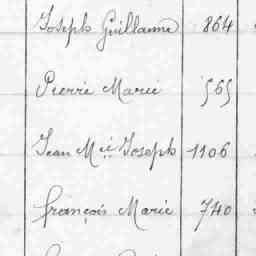 Joseph Guillaume 864
Pierre Marie 565
Jean Mie Joseph 1106
François Marie 740